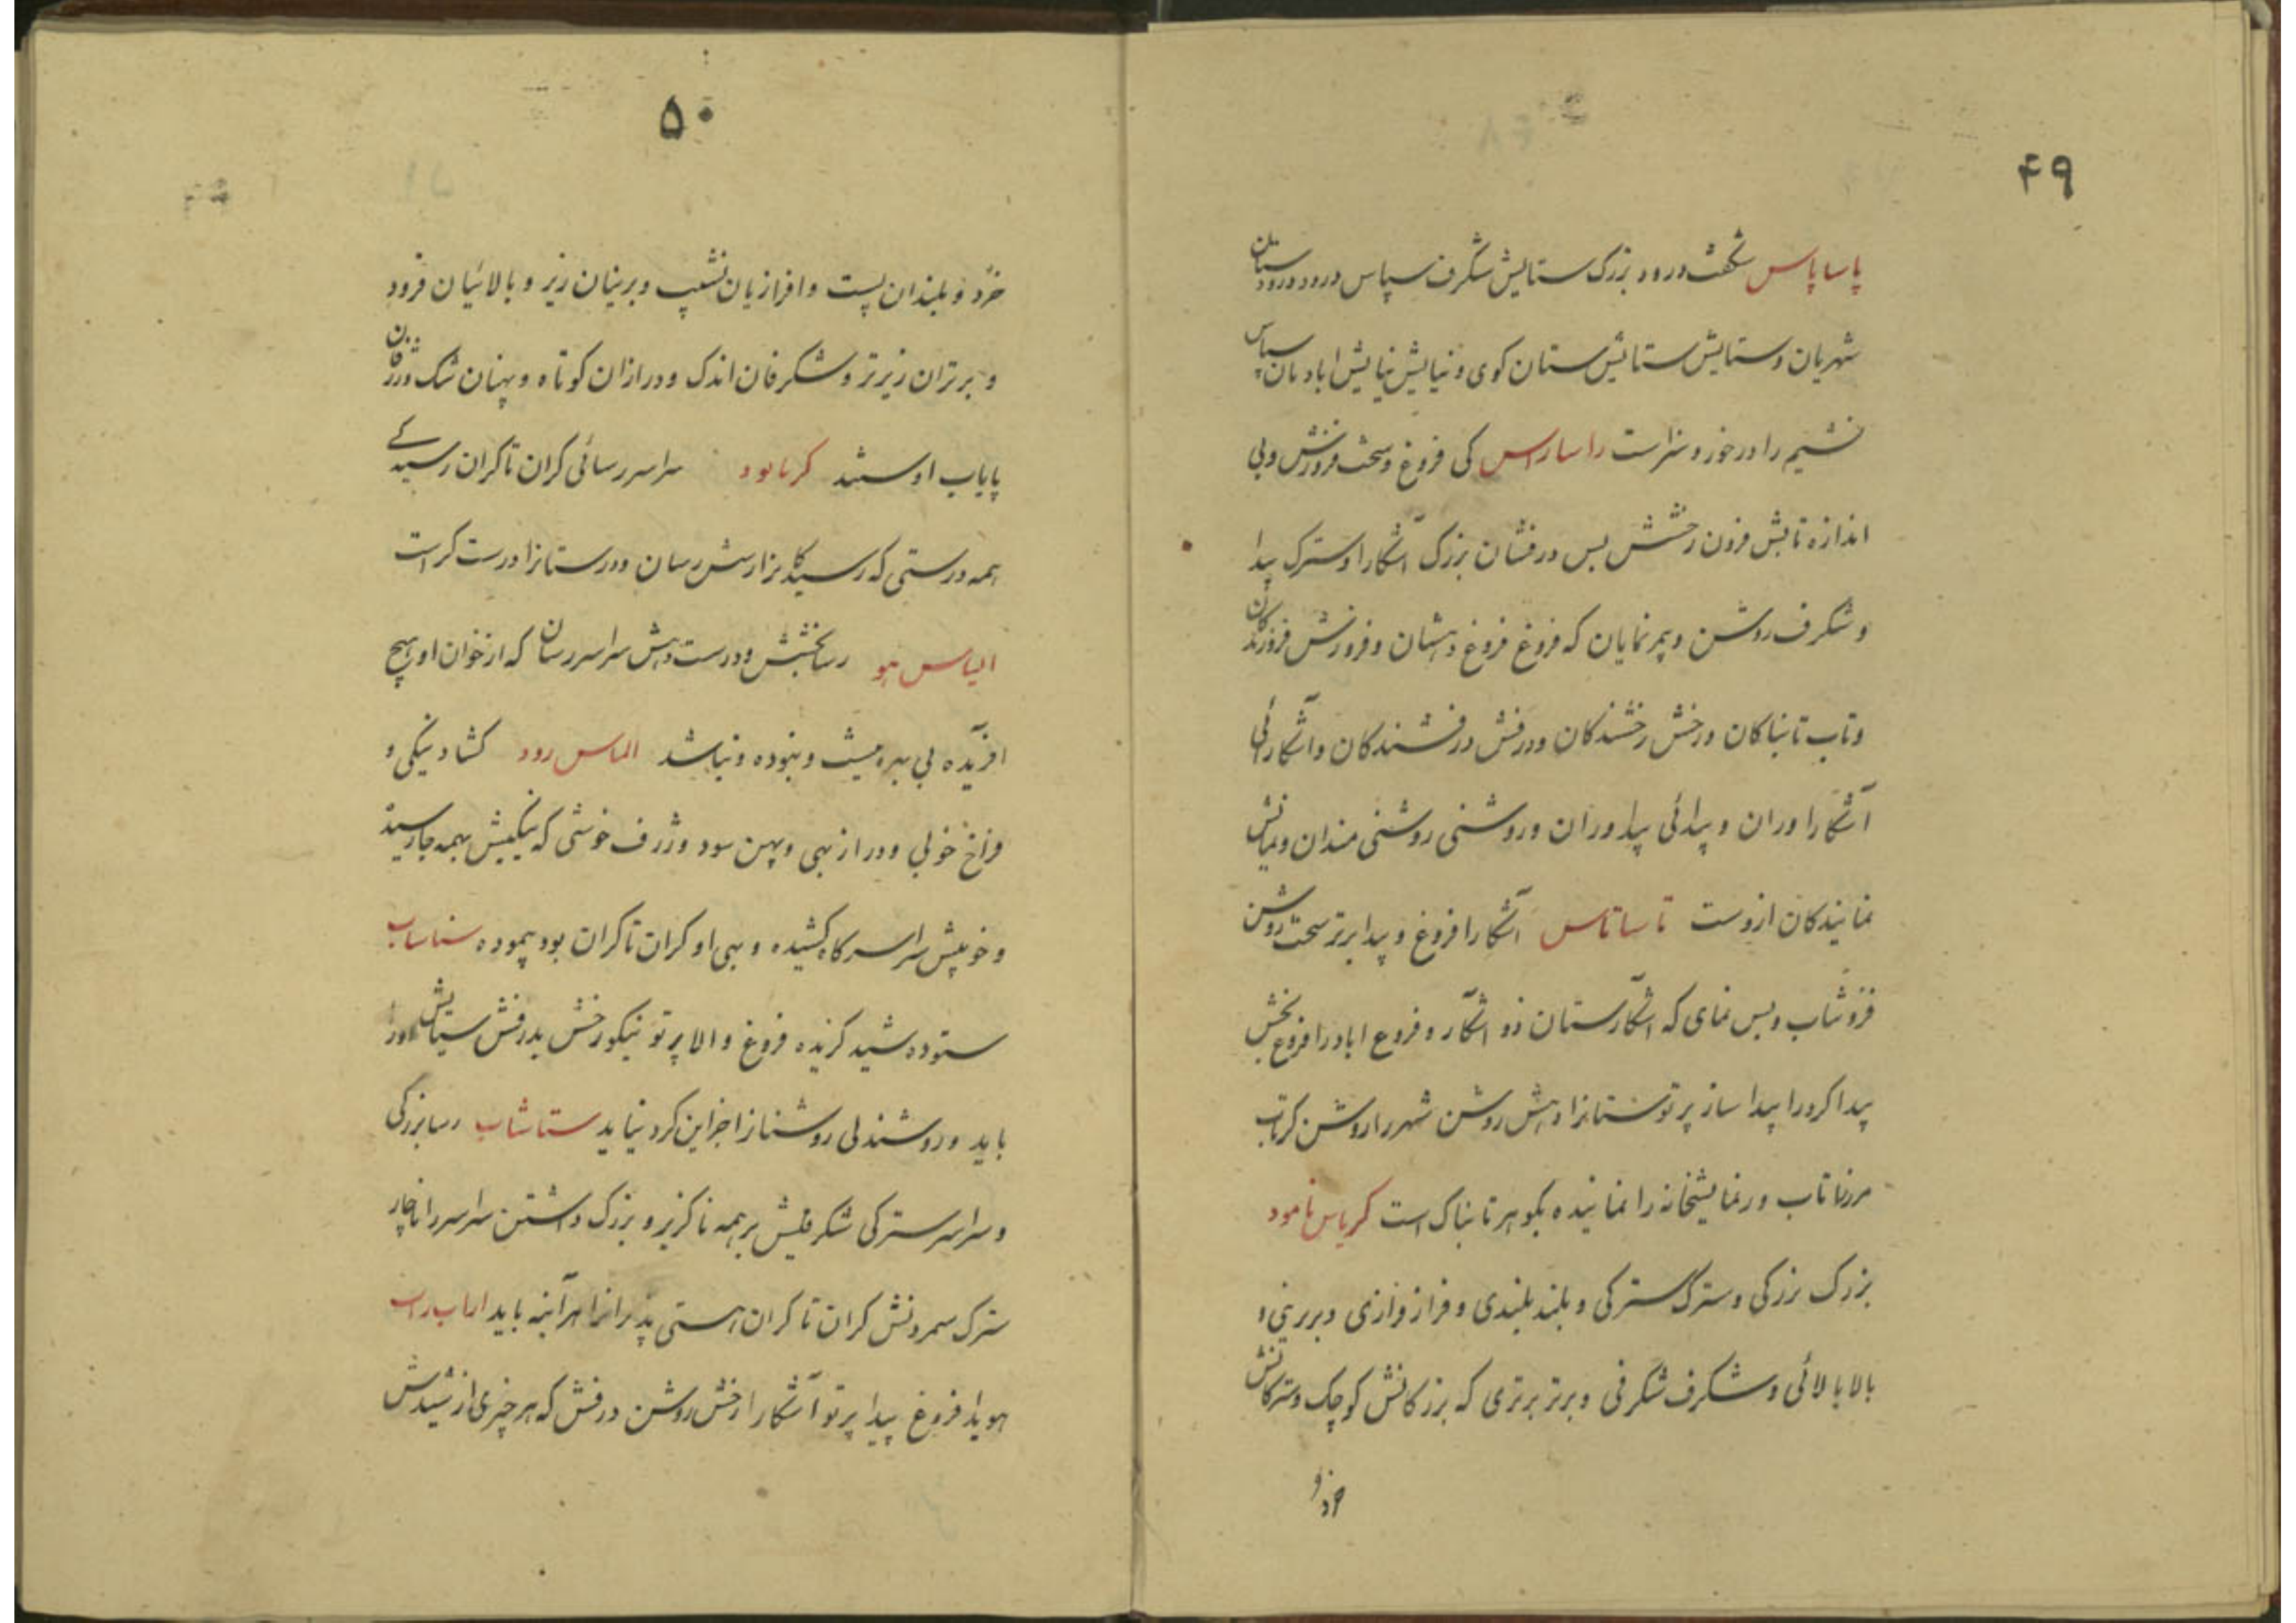 ۴۹
پاساپاس شگفت درود بزرک ستایش شکرف سپاس درود درودستان
شهریان و ستایش ستایش ستان کوی و نیایش نیایش ابادیان سپاس
نشیم را درخور و سزاست راساراس کی فروغ و سخت فروزش و بی
اندازه تابش فزون رخشش بس درفشان بزرک آشکارا و سترک پیدا
و شکرف روشن و پر نمایان که فروغ فروغ دهشان و فروزش فروزندکان
و تاب تابناکان و رخش رخشندکان و درفش درفشندکان و آشکارائی
آشکارا وران و پیدائی پیدا وران و روشنی روشنی مندان و نمایش
نمایندکان ازوست تاساتاس آشکارا فروغ و پیدا برتر سخت روشن
فزوشاب و بس نمای که اشکارستان ذو اشکار و فروع اباد را فروغ بخش
پیدا کرد را پیدا ساز پرتوستانرا دهش روشن شهر را روشن کر تاب
مرزرا تاب و نمایشخانه را نماینده بکوهر تابناک است کرپاس نامود
بزرک بزرکی و سترک سترکی و بلند بلندی و فراز فرازی و بر برینی و
بالا بالائی و شکرف شکرفی و برتر برتری که بزرکانش کوچک و سترکانش
خرد و
۵۰
خرد و بلندان پست و افرازیان نشیب و برینان زیر و بالائیان فرود
و برتران زیرتر و شکرفان اندک و درازان کوتاه و پهنان تنک و ژرفان
پایاب اوستند کرمابود سراسر رسائی کران تا کران رسیدکے
همه درستی که رسیدکانرا رسش رسان و درستانرا درست کر است
الپاس هو رسا بخشش و درست دهش سراسر رسان که از خوان او هیچ
افریده بی بهره نیست و نبوده و نباشد الماس رود کشاد نیکی و
فراخ خوبی و دراز بهی و پهن سود و ژرف خوشی که نیکیش بهمه جا رسیده
و خوبیش سراسر کاه کشیده و بهی او کران تا کران بود پیموده ستاساب
ستوده شید کزیده فروغ والا پرتو نیکو رخش بدرفش ستایش اورا
باید و روشندلی روشنانرا جز این کرد نیاید ستاشاب رسا بزرکی
و سراسر سترکی شکرفیش بر همه ناکزیر و بزرک داشتن سراسر را ناچار
سترک سمردنش کران تا کران هستی پذیرانرا هر آینه باید اراب راب
هویدا فروغ پیدا پرتو آشکارا رخش روشن درفش که هر چیزی از شیدش